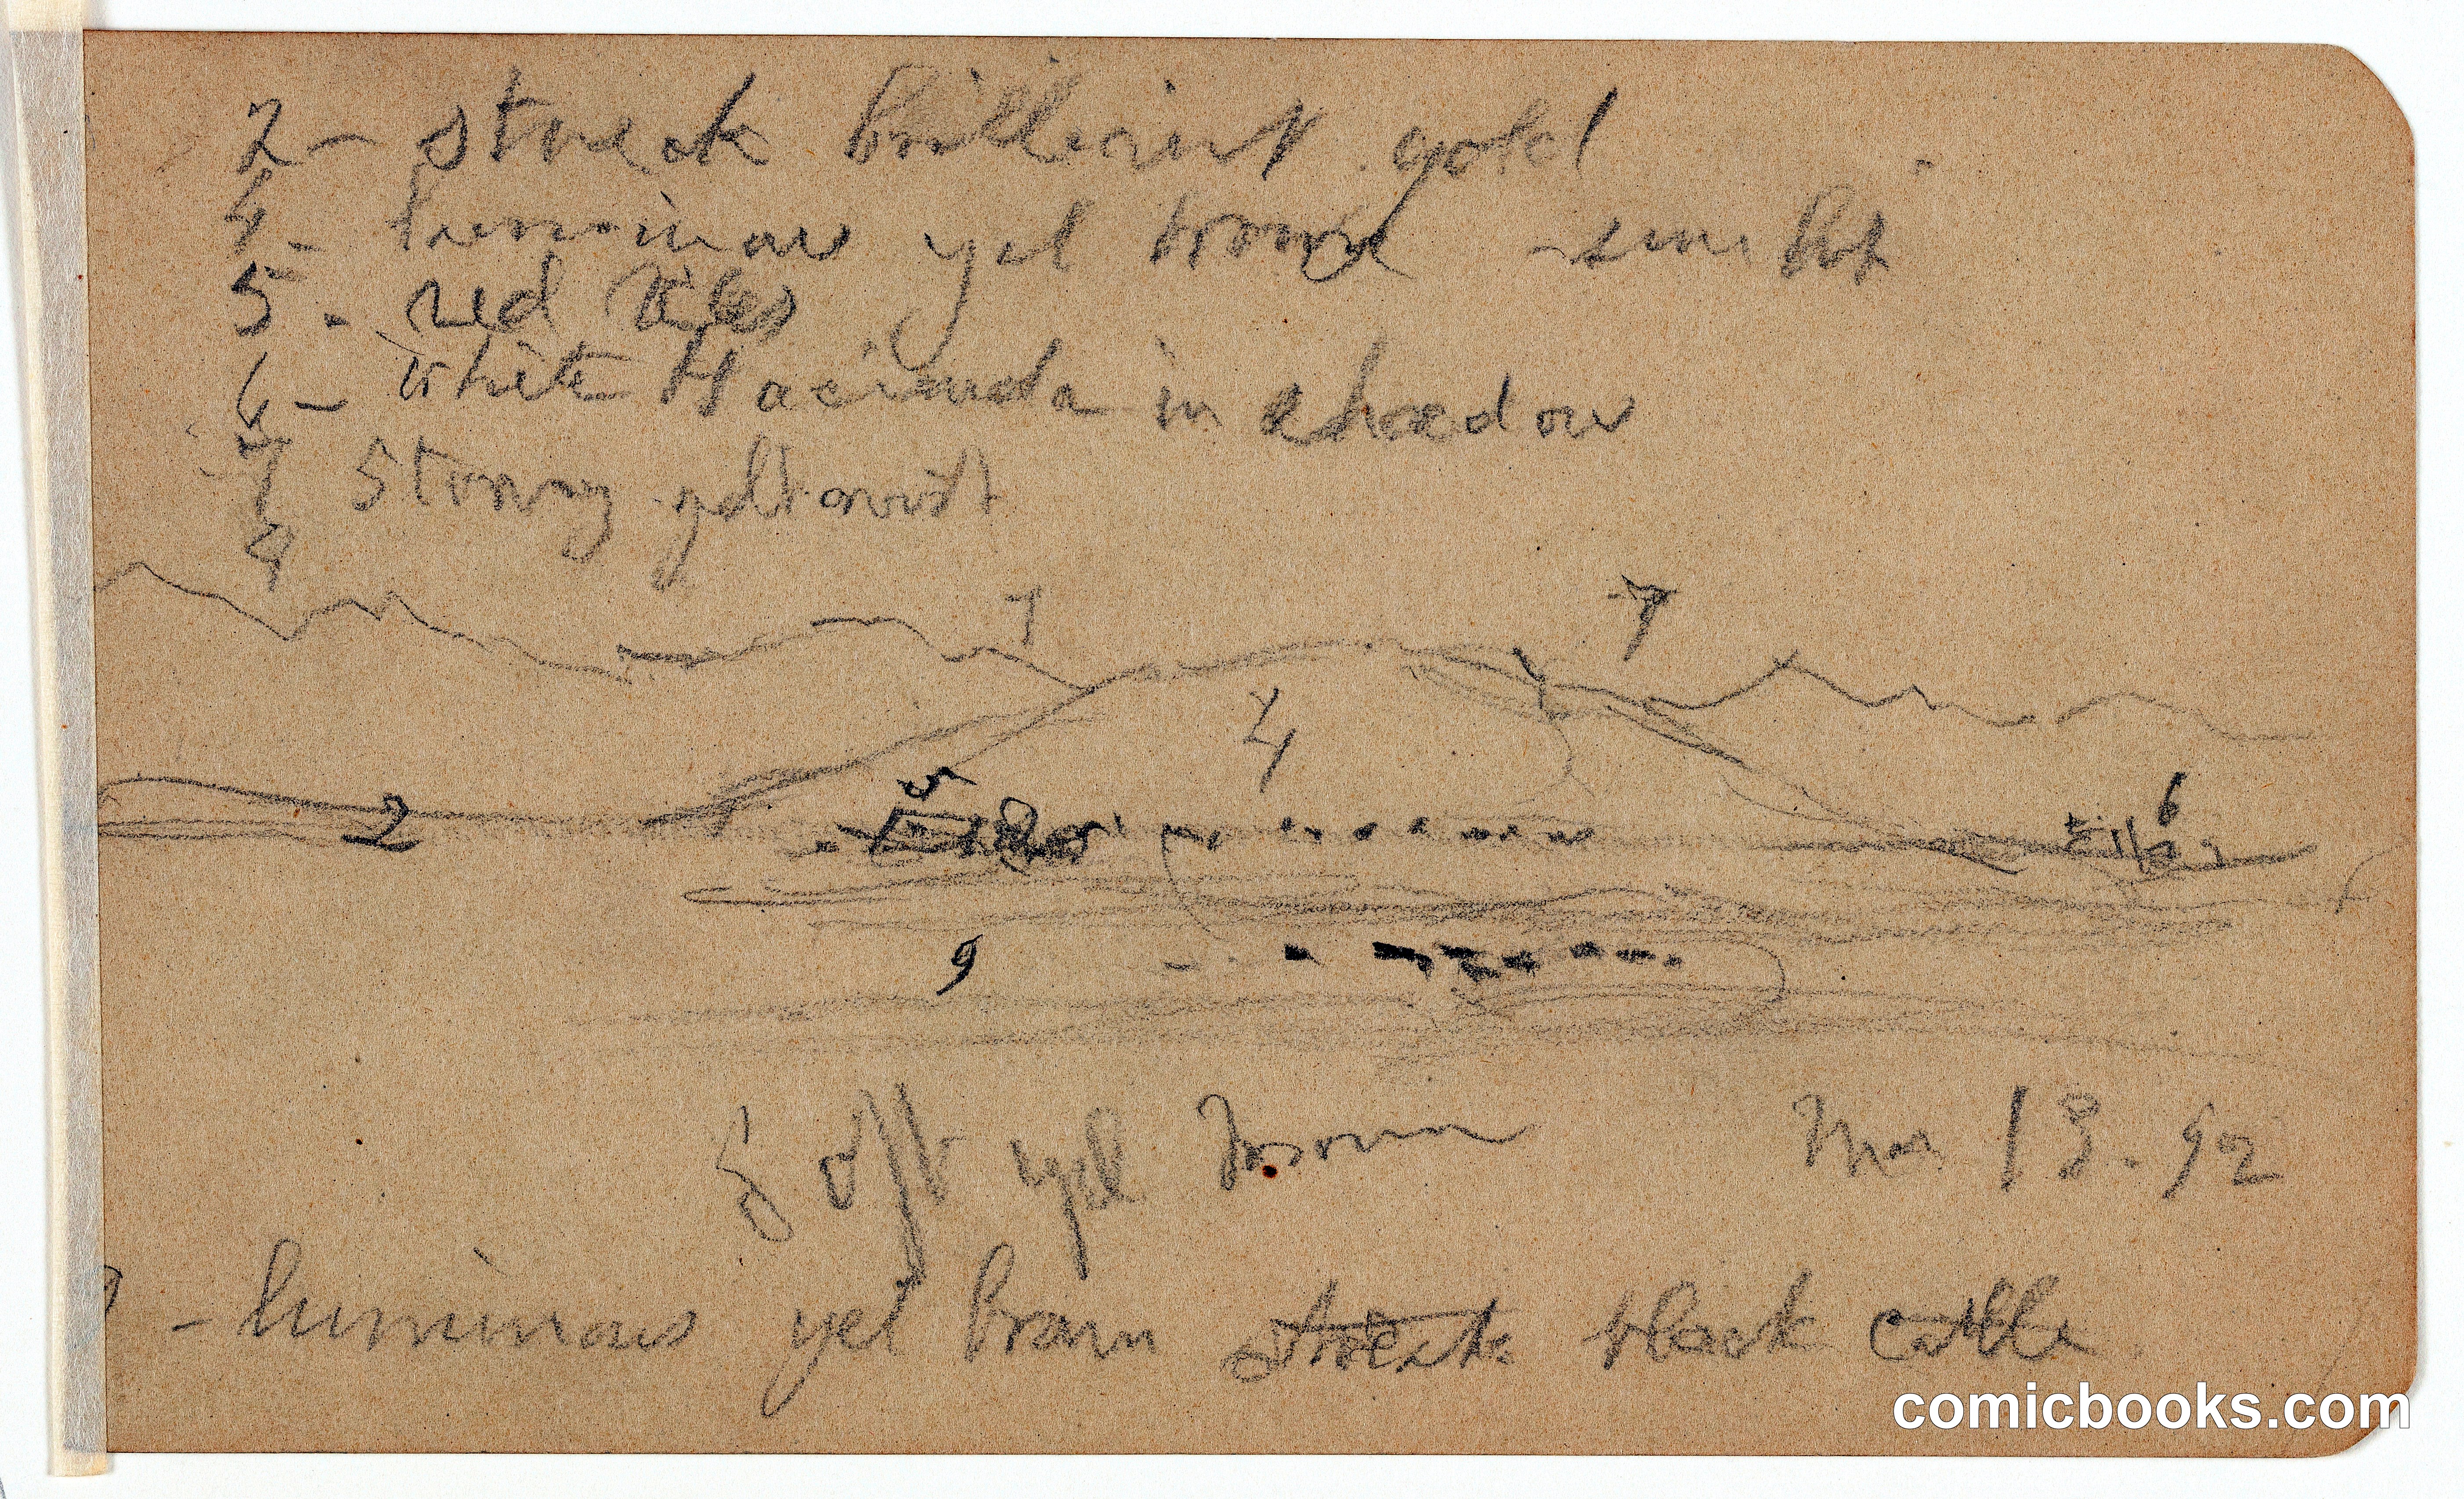 2 - streak brilliant gold
4 - luminous yel brown - sun lit
5 - red tiles
6 - white Hacienda in shadow
7 Strong yel
9
7 7
4
5 6
2
9
Soft yel brown Mar 13. 92
9 - luminous yel brown streak black cattle
comicbooks.com